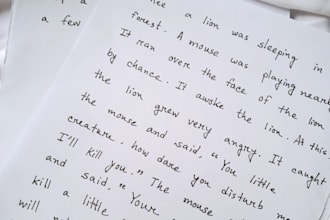 a
a few
a lion was sleeping in
forest. A mouse was playing near
It ran over the face of the lion
by chance. It awoke the lion. At this
the lion grew very angry. It caught
the mouse and said, "You little
creature. how dare you disturb me
I'll kill you." The mouse
and said, "Your
kill a little
will